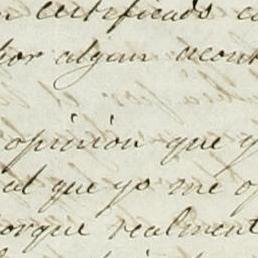 n certificado c
por algun acont
opinion que y
al que yo me o
orque realment